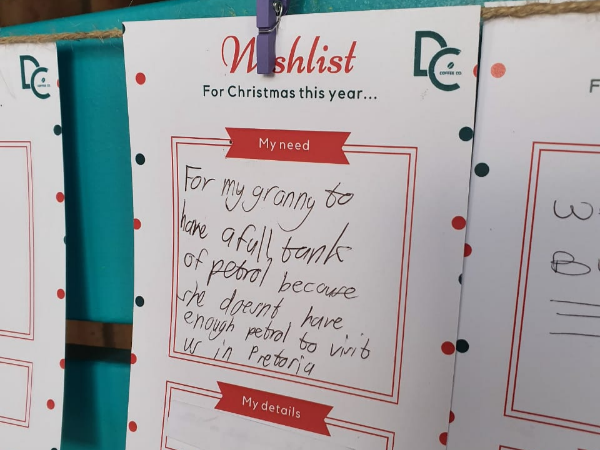 Wishlist
DC
COFFEE CO.
For Christmas this year...
My need
For my granny to
have a full tank
of petrol because
she doesnt have
enough petrol to visit
us in Pretoria
My details
DC
F
3
B